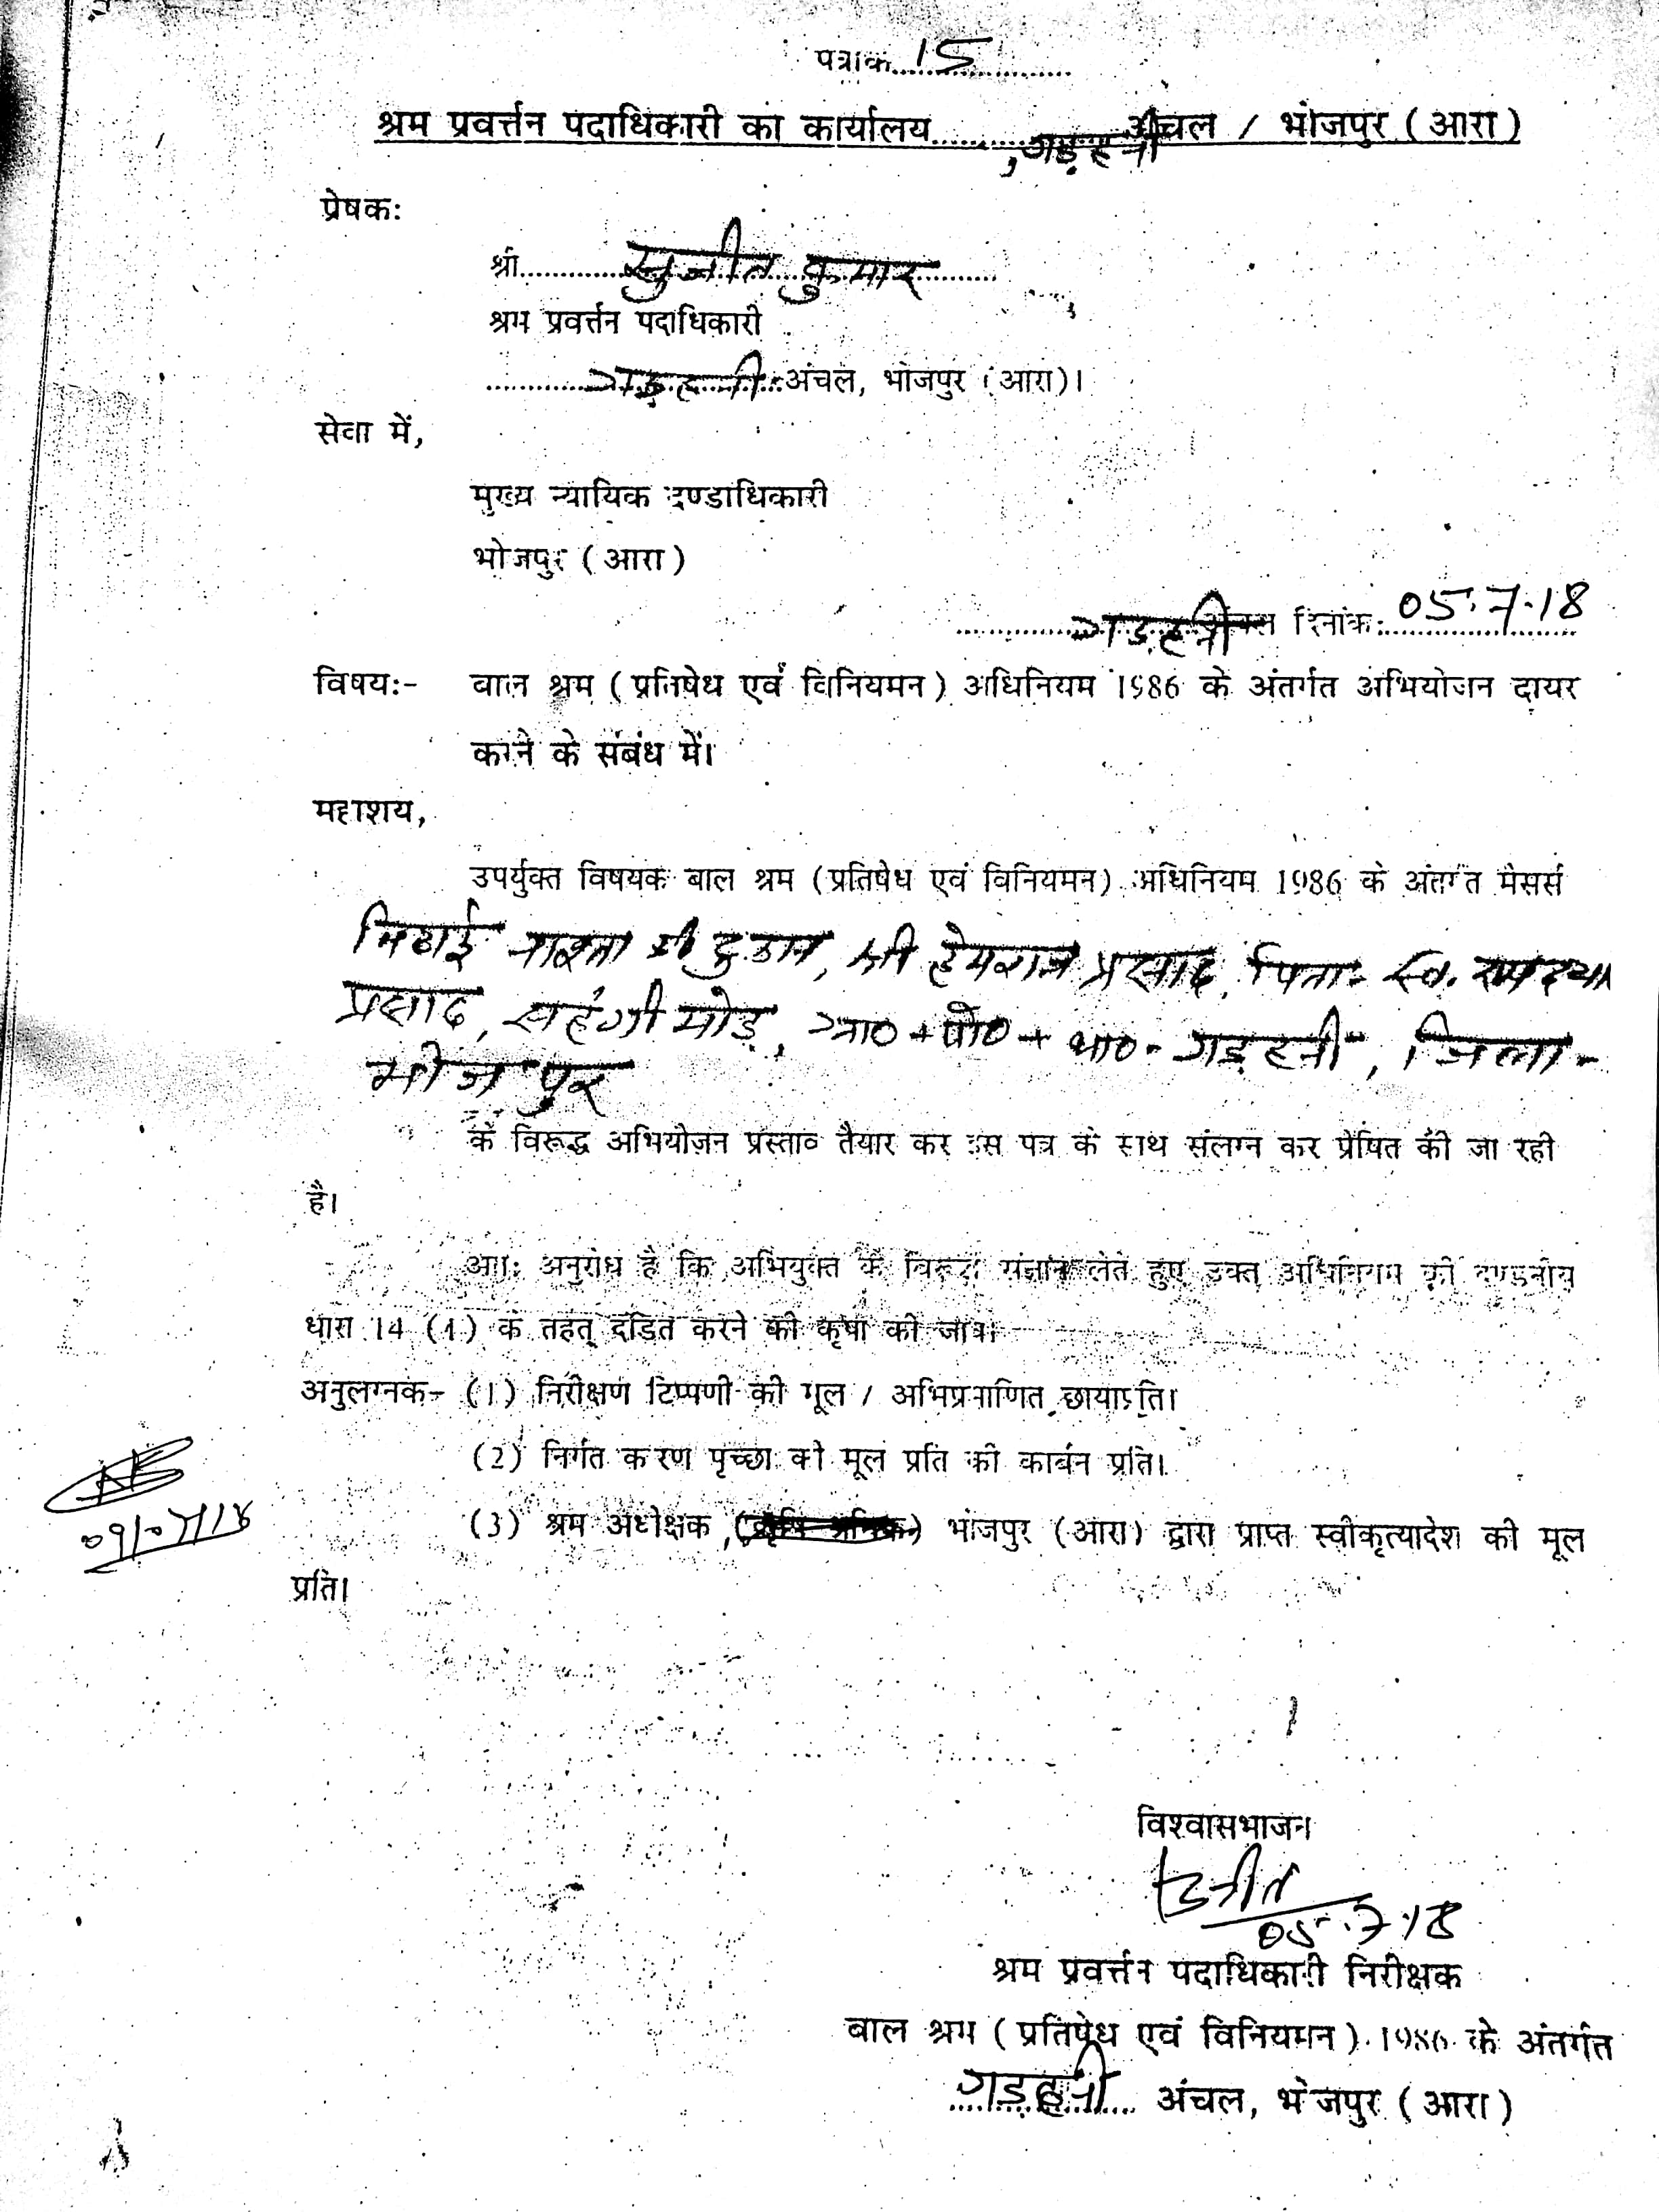 पत्रांक 15
श्रम प्रवर्त्तन पदाधिकारी का कार्यालय, गड़हनी अंचल / भोजपुर (आरा)
प्रेषक:
श्री सुजीत कुमार
श्रम प्रवर्त्तन पदाधिकारी
गड़हनी अंचल, भोजपुर (आरा)।
सेवा में,
मुख्य न्यायिक दण्डाधिकारी
भोजपुर (आरा)
गड़हनी अंचल दिनांक: 05.7.18
विषय:- बाल श्रम (प्रतिषेध एवं विनियमन) अधिनियम 1986 के अंतर्गत अभियोजन दायर
करने के संबंध में।
महाशय,
उपर्युक्त विषयक बाल श्रम (प्रतिषेध एवं विनियमन) अधिनियम 1986 के अंतर्गत मैसर्स
मिठाई नाश्ता की दुकान, श्री हेमराज प्रसाद, पिता- स्व.
प्रसाद, सहंगी मोड़, ग्रा० + पो० + था०- गड़हनी, जिला-
भोजपुर
के विरूद्ध अभियोजन प्रस्ताव तैयार कर इस पत्र के साथ संलग्न कर प्रेषित की जा रही
है।
अतः अनुरोध है कि अभियुक्त के विरूद्ध संज्ञान लेते हुए उक्त अधिनियम की दण्डनीय
धारा 14 (1) के तहत् दंडित करने की कृपा की जाय।
अनुलग्नक- (1) निरीक्षण टिप्पणी की मूल / अभिप्रमाणित छायाप्रति।
(2) निर्गत कारण पृच्छा की मूल प्रति की कार्बन प्रति।
09/07/18
(3) श्रम अधीक्षक, (कृषि श्रमिक) भोजपुर (आरा) द्वारा प्राप्त स्वीकृत्यादेश की मूल
प्रति।
विश्वासभाजन
सुजीत
05.7.18
श्रम प्रवर्त्तन पदाधिकारी निरीक्षक
बाल श्रम (प्रतिषेध एवं विनियमन) 1986 के अंतर्गत
गड़हनी अंचल, भोजपुर (आरा)